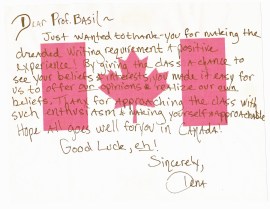 Dear Prof. Basil ~
Just wanted to thank-you for making the
dreaded writing requirement a positive
experience! By giving the class a chance to
see your beliefs & interests, you made it easy for
us to offer our opinions & realize our own
beliefs. Thank for approaching the class with
such enthusiasm & making yourself approachable
Hope all goes well for you in Canada!
Good Luck, eh!
Sincerely,
Dena